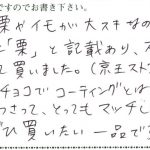 ですのでお書き下さい。
栗やイモが大スキなの
「栗」と記載あり、
て買いました。(京王スト
チョコでコーティングとは
さって、とってもマッチし
ひ買いたい一品で